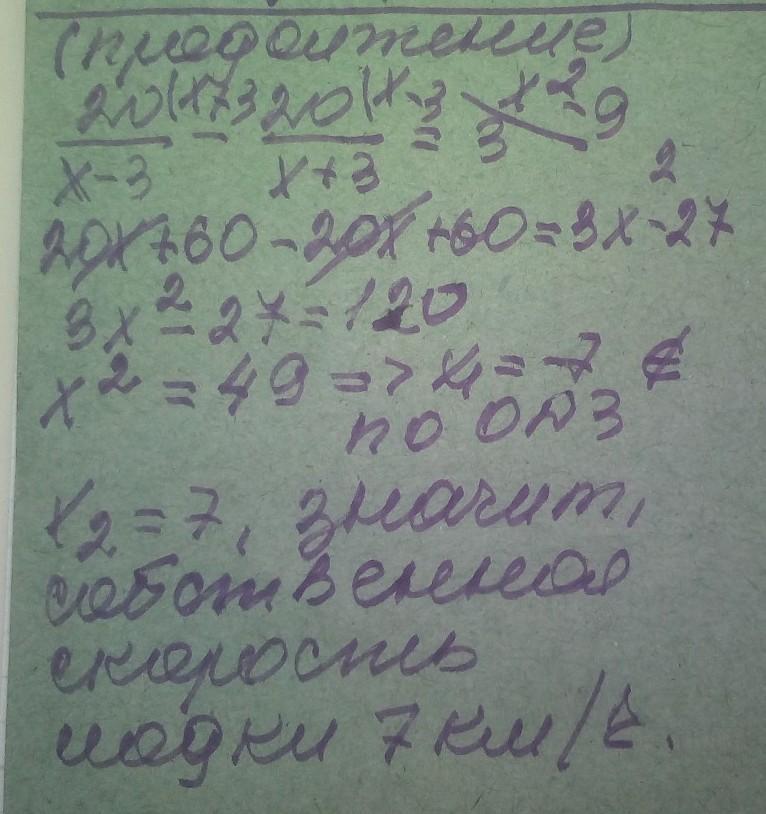 (продолжение)
20(x+3 / x-3 - 20(x-3 / x+3 = 3 x²-9
20x+60-20x+60=3x²-27
3x²-27=120
x²=49 => x₁=-7 ∉
по ОДЗ
x₂=7, значит,
собственная
скорость
лодки 7 км/ч.